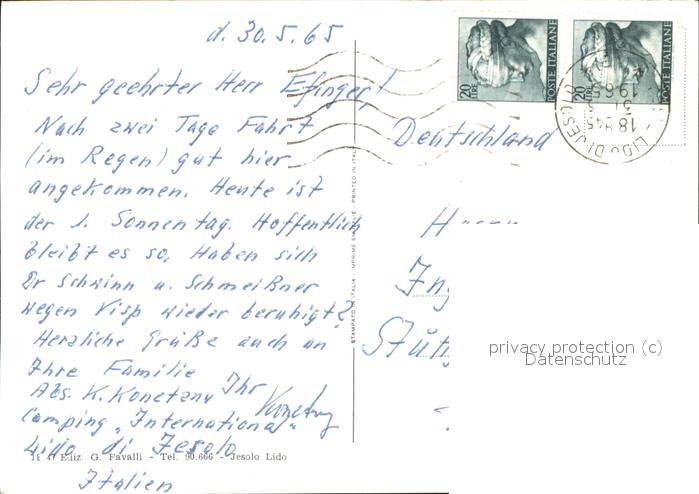 d. 30.5.65
Sehr geehrter Herr Efinger!
Nach zwei Tage Fahrt
(im Regen) gut hier
angekommen. Heute ist
der 1. Sonnentag. Hoffentlich
bleibt es so. Haben sich
Dr Schwinn u. Schmeißner
wegen Visp wieder beruhigt?
Herzliche Grüße auch an
Ihre Familie
Ihr Konetzny
Abs. K. Konetzny
Camping "International"
Lido di Jesolo
Italien
Ediz. G. Favalli - Tel. 90.666 - Jesolo Lido
STAMPATO IN ITALIA - IMPRIMÉ EN ITALIE - PRINTED IN ITALY
20 LIRE
POSTE ITALIANE
20 LIRE
POSTE ITALIANE
LIDO DI JESOLO
Deutschland
Ing
Stutt
privacy protection (c)
Datenschutz